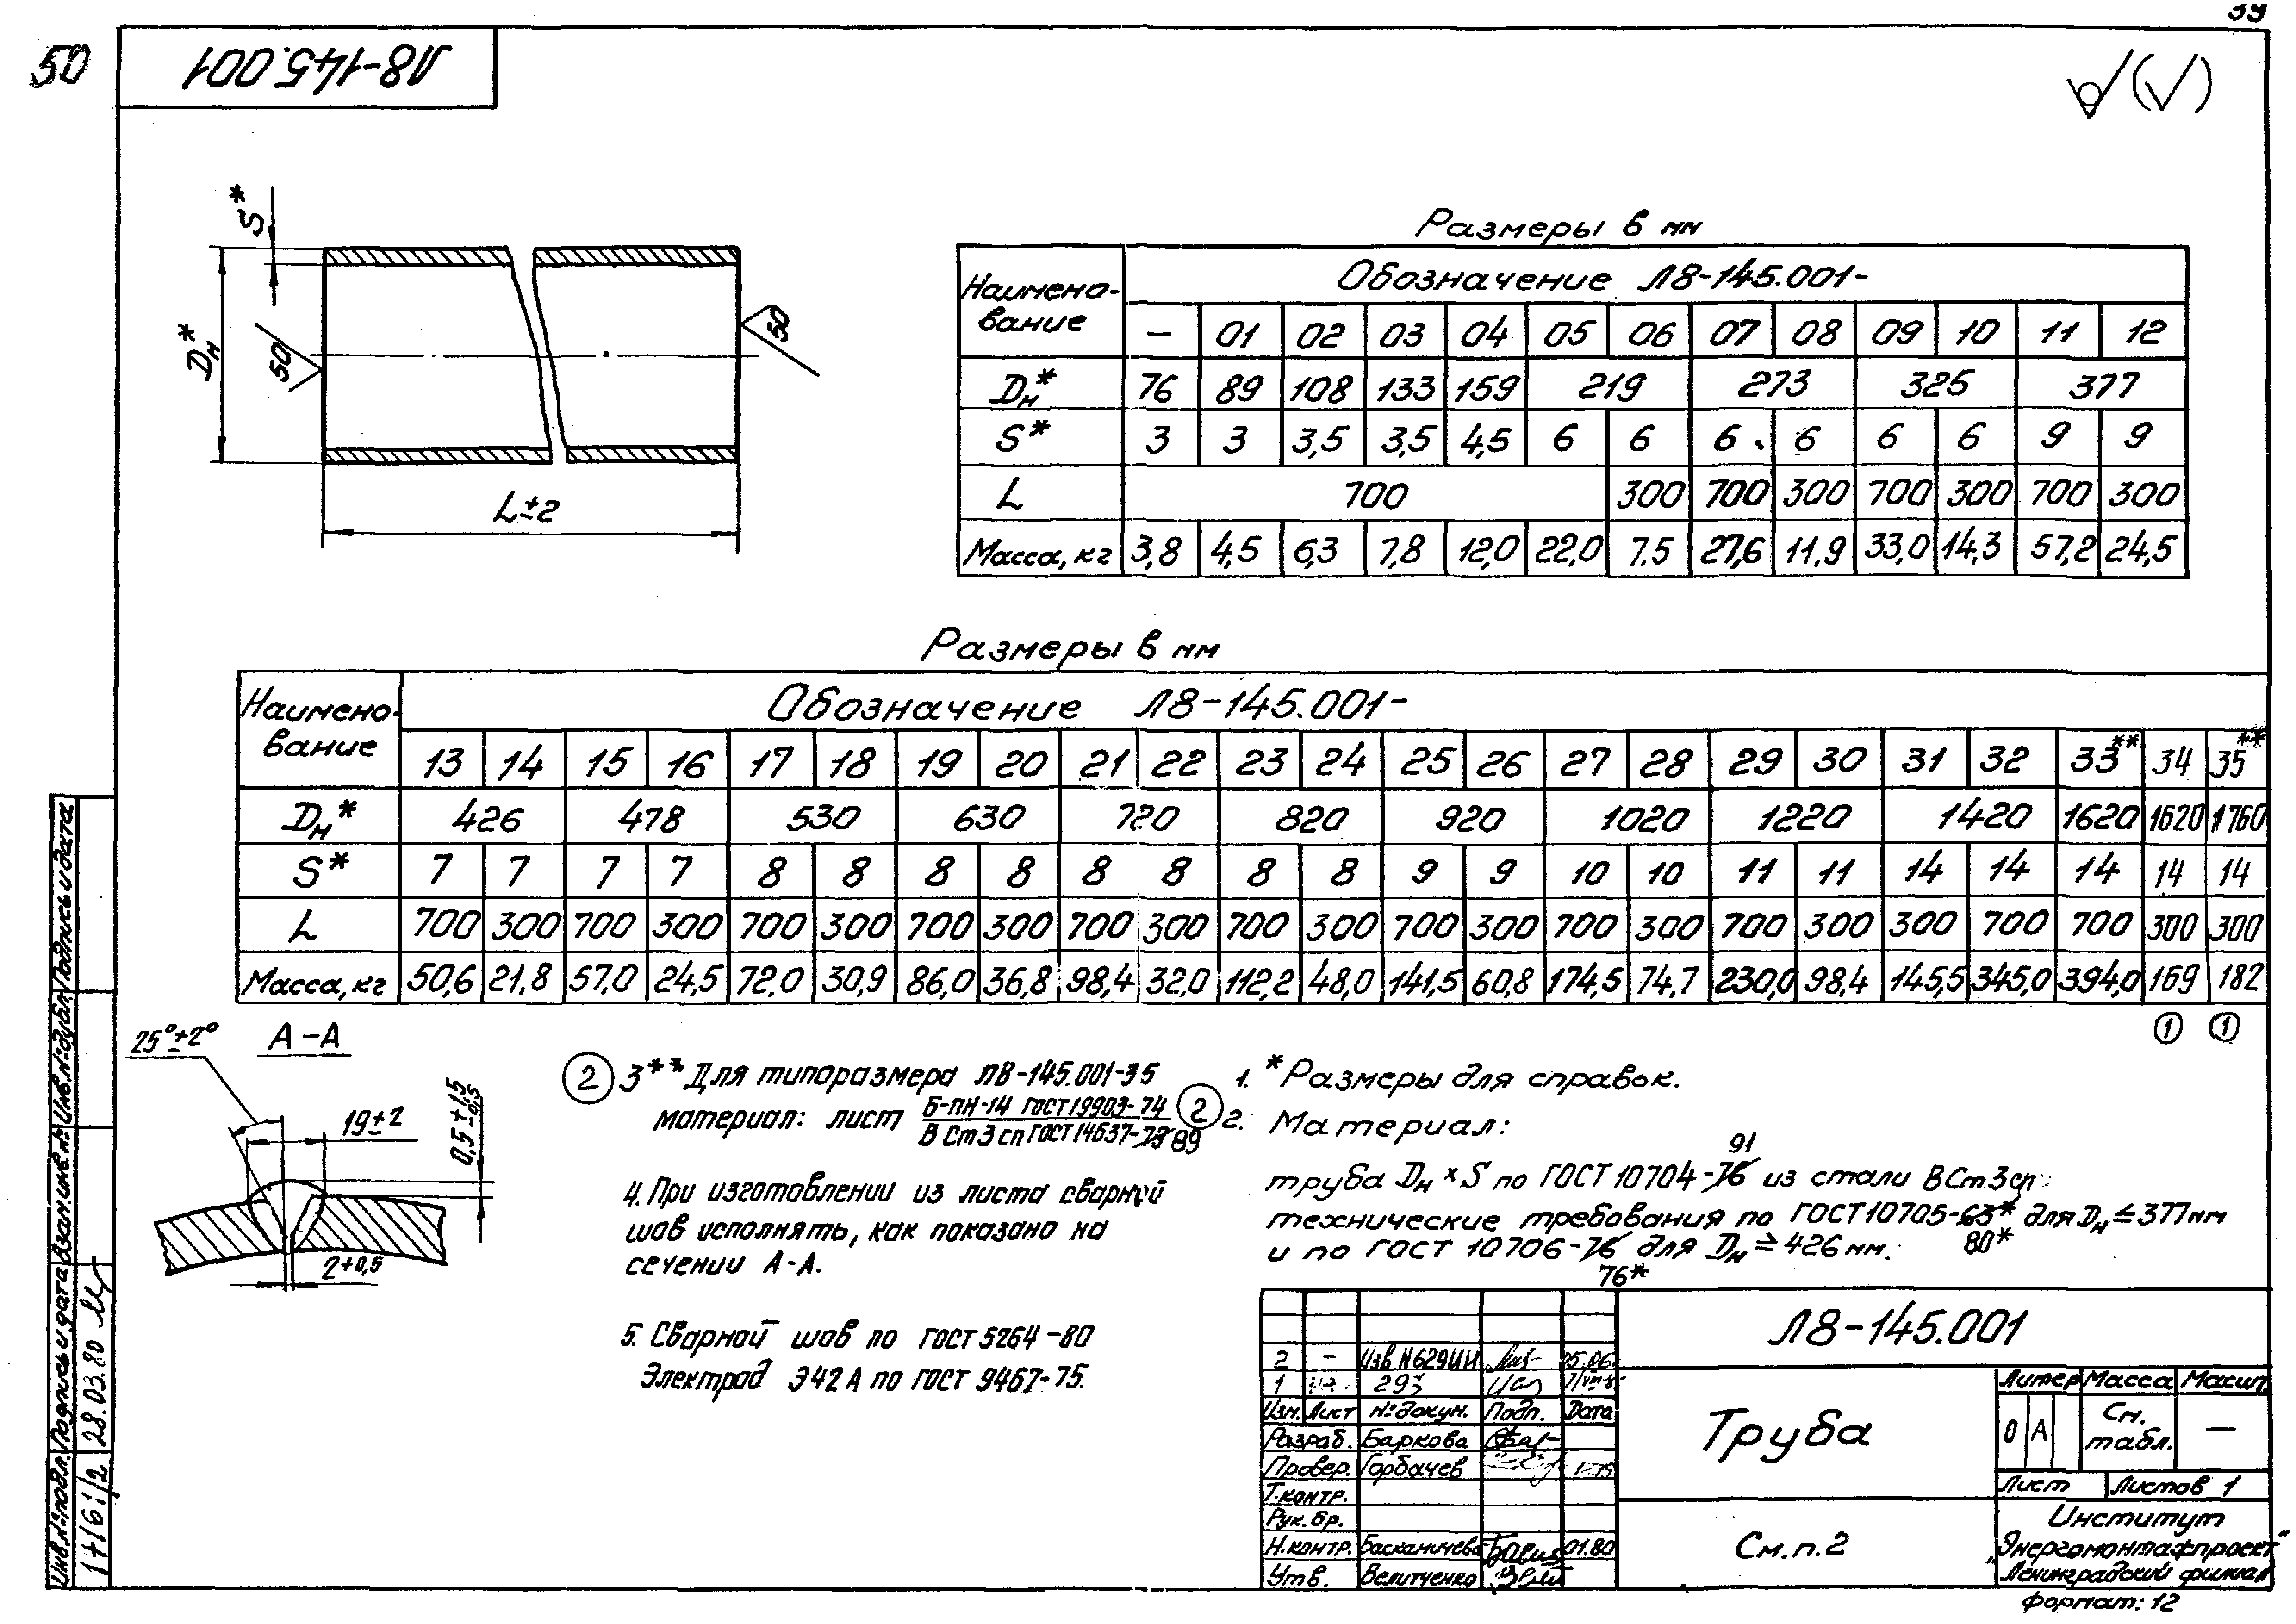 39
50
Л8-145.001
√(√)
S*
Dн*
50
50
L±2
Размеры в мм
Наимено-вание | Обозначение Л8-145.001-
– | 01 | 02 | 03 | 04 | 05 | 06 | 07 | 08 | 09 | 10 | 11 | 12
Dн* | 76 | 89 | 108 | 133 | 159 | 219 | 273 | 325 | 377
S* | 3 | 3 | 3,5 | 3,5 | 4,5 | 6 | 6 | 6 | 6 | 6 | 6 | 9 | 9
L | 700 | 300 | 700 | 300 | 700 | 300 | 700 | 300
Масса, кг | 3,8 | 4,5 | 6,3 | 7,8 | 12,0 | 22,0 | 7.5 | 27,6 | 11,9 | 33,0 | 14,3 | 57,2 | 24,5
Размеры в мм
Наимено-вание | Обозначение Л8-145.001-
13 | 14 | 15 | 16 | 17 | 18 | 19 | 20 | 21 | 22 | 23 | 24 | 25 | 26 | 27 | 28 | 29 | 30 | 31 | 32 | 33** | 34 | 35**
Dн* | 426 | 478 | 530 | 630 | 720 | 820 | 920 | 1020 | 1220 | 1420 | 1620 | 1620 | 1760
S* | 7 | 7 | 7 | 7 | 8 | 8 | 8 | 8 | 8 | 8 | 8 | 8 | 9 | 9 | 10 | 10 | 11 | 11 | 14 | 14 | 14 | 14 | 14
L | 700 | 300 | 700 | 300 | 700 | 300 | 700 | 300 | 700 | 300 | 700 | 300 | 700 | 300 | 700 | 300 | 700 | 300 | 300 | 700 | 700 | 300 | 300
Масса, кг | 50,6 | 21,8 | 57,0 | 24,5 | 72,0 | 30,9 | 86,0 | 36,8 | 98,4 | 32,0 | 112,2 | 48,0 | 141,5 | 60,8 | 174,5 | 74,7 | 230,0 | 98,4 | 145,5 | 345,0 | 394,0 | 169 | 182
1 1
А-А
25°±2°
19±2
0,5 +1,5 -0,5
2+0,5
2 3** Для типоразмера Л8-145.001-35
материал: лист Б-ПН-14 ГОСТ 19903-74
В Ст3 сп ГОСТ 14637-79 89
4. При изготовлении из листа сварной
шов исполнять, как показано на
сечении А-А.
5. Сварной шов по ГОСТ 5264-80
Электрод Э42А по ГОСТ 9467-75.
1. *Размеры для справок.
2 2. Материал:
91
труба Dн×S по ГОСТ 10704-76 из стали ВСт3сп
технические требования по ГОСТ 10705-63* для Dн ≤ 377 мм
80*
и по ГОСТ 10706-76 для Dн ≥ 426 мм.
76*
Л8-145.001
2 – Изв. N629ИИ 05.06.
1 293
Изм. Лист №докум. Подп. Дата
Разраб. Баркова
Провер. Горбачев
Т.контр.
Рук. бр.
Н.контр. Басканичева 01.80
Утв. Велитченко
Труба
См.п.2
Литер Масса Масшт.
О А См. табл. –
Лист Листов 1
Институт
„Энергомонтажпроект"
Ленинградский филиал
Формат: 12
Инв.№подл. Подпись и дата Взам.инв.№ Инв.№дубл. Подпись и дата
28.03.80